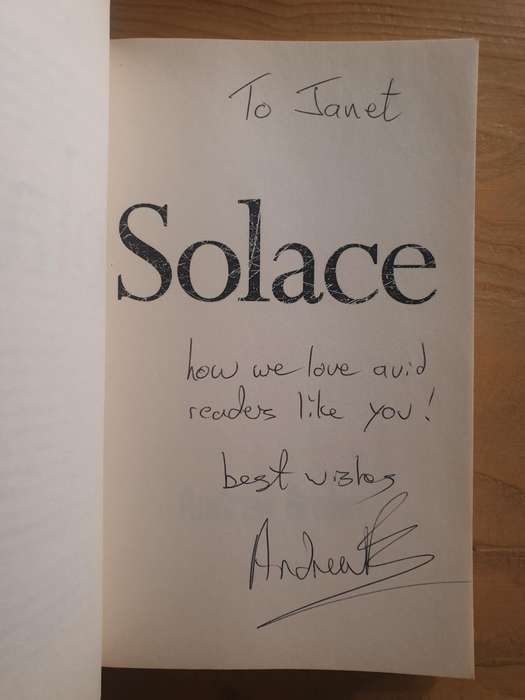 To Janet
Solace
how we love avid
readers like you!
best wishes
Andrew